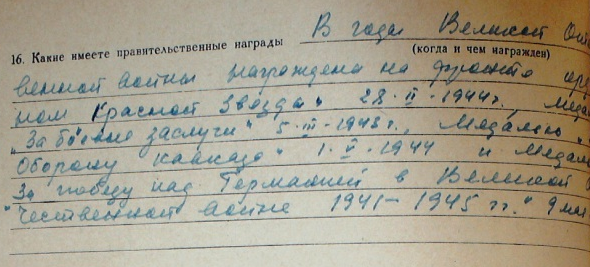 В годы Великой Оте
16. Какие имеете правительственные награды
(когда и чем награжден)
венной войны награждена на фронте орде
ном Красной Звезды" 28·II·1944г., меда
"За боевые заслуги" 5·III·1943г., медалью "
Оборону Кавказа" 1·V·1944 и медал
"За победу над Германией в Великой
"чественной войне 1941–1945 гг." 9 мая